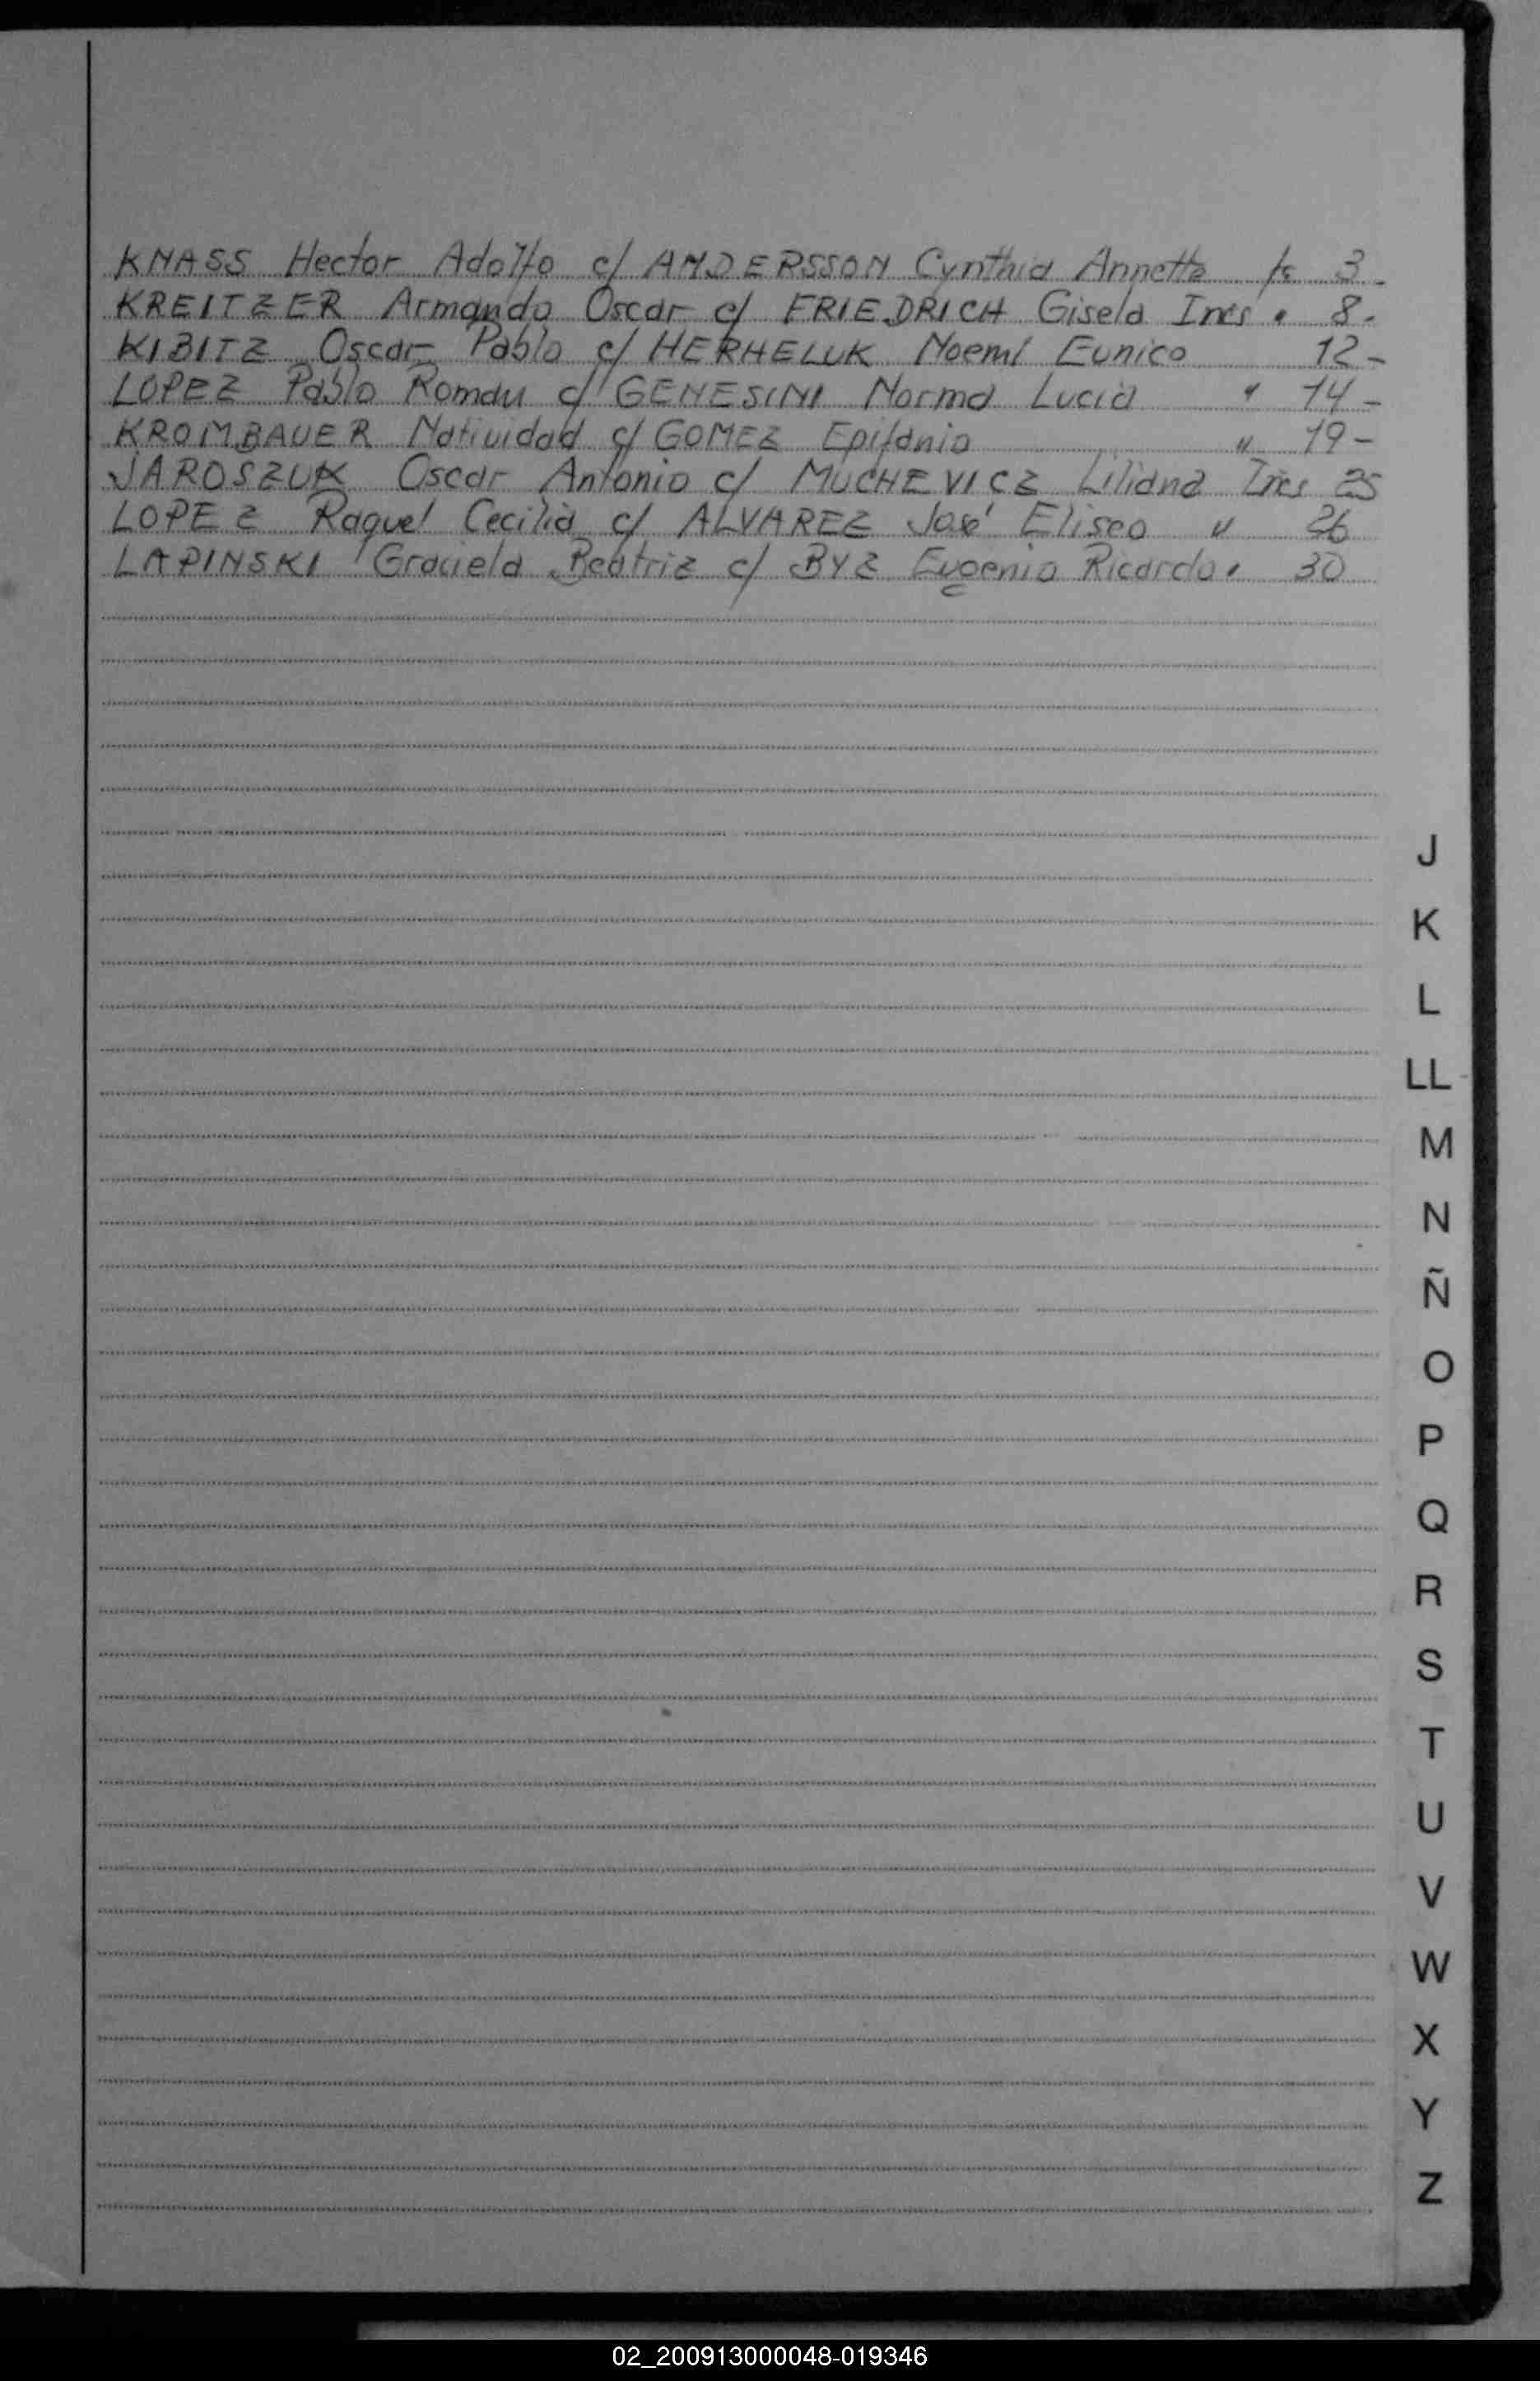 KNASS Hector Adolfo c/ ANDERSSON Cynthia Annette fs 3-
KREITZER Armando Oscar c/ FRIEDRICH Gisela Ines " 8-
KIBITZ Oscar Pablo c/ HERHELUK Noemi Eunice 12-
LOPEZ Pablo Roman c/ GENESINI Norma Lucia " 14-
KROMBAUER Natividad c/ GOMEZ Epifanio " 19-
JAROSZUK Oscar Antonio c/ MUCHEVICZ Liliana Ines 25
LOPEZ Raquel Cecilia c/ ALVAREZ José Eliseo " 26
LAPINSKI Graciela Beatriz c/ BYZ Eugenio Ricardo " 30
J
K
L
LL
M
N
Ñ
O
P
Q
R
S
T
U
V
W
X
Y
Z
02_200913000048-019346